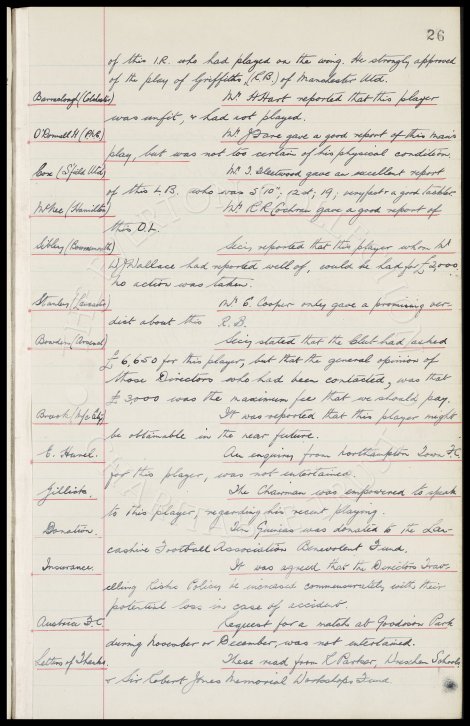 26
of this I.R. who had played on the wing. He strongly approved
of the play of Griffiths (R.B.) of Manchester Utd.
Barraclough (Colchester) Mr H Hart reported that this player
was unfit, & had not played.
O'Donnell H (P.N.E.) Mr J Fare gave a good report of this man's
play, but was not too certain of his physical condition.
Cox (S'field Utd) Mr I. Fleetwood gave an excellent report
of this L.B. who was 5'10", 12st, 19, very fast & a good tackler.
McKee (Hamilton) Mr R.R Cochrane gave a good report of
this O.L.
Sibley (Bournemouth) Secy, reported that this player whom Mr
W J Wallace had reported well of, could be had for £2,000.
No action was taken.
Stanley (Lancaster) Mr E. Cooper only gave a promising ver-
dict about this R.B.
Bowden (Arsenal) Secy stated that the Club had asked
£6,650 for this player, but that the general opinion of
those Directors who had been contacted, was that
£3,000 was the maximum fee that we should pay.
Brook (M/c City) It was reported that this player might
be obtainable in the near future.
E. Hurel. An enquiry from Northampton Town F.C.
for this player, was not entertained.
Gillick. The Chairman was empowered to speak
to this player, regarding his recent playing.
Donation. Ten Guineas was donated to the Lan-
cashire Football Association Benevolent Fund.
Insurance. It was agreed that the Directors Trav-
elling Risks Policy be increased commensurately with their
potential loss in case of accident.
Austria F.C. Request for a match at Goodison Park
during November or December, was not entertained.
Letters of Thanks. These read from K Parker, Schools,
& Sir Robert Jones Memorial Workshops Fund.